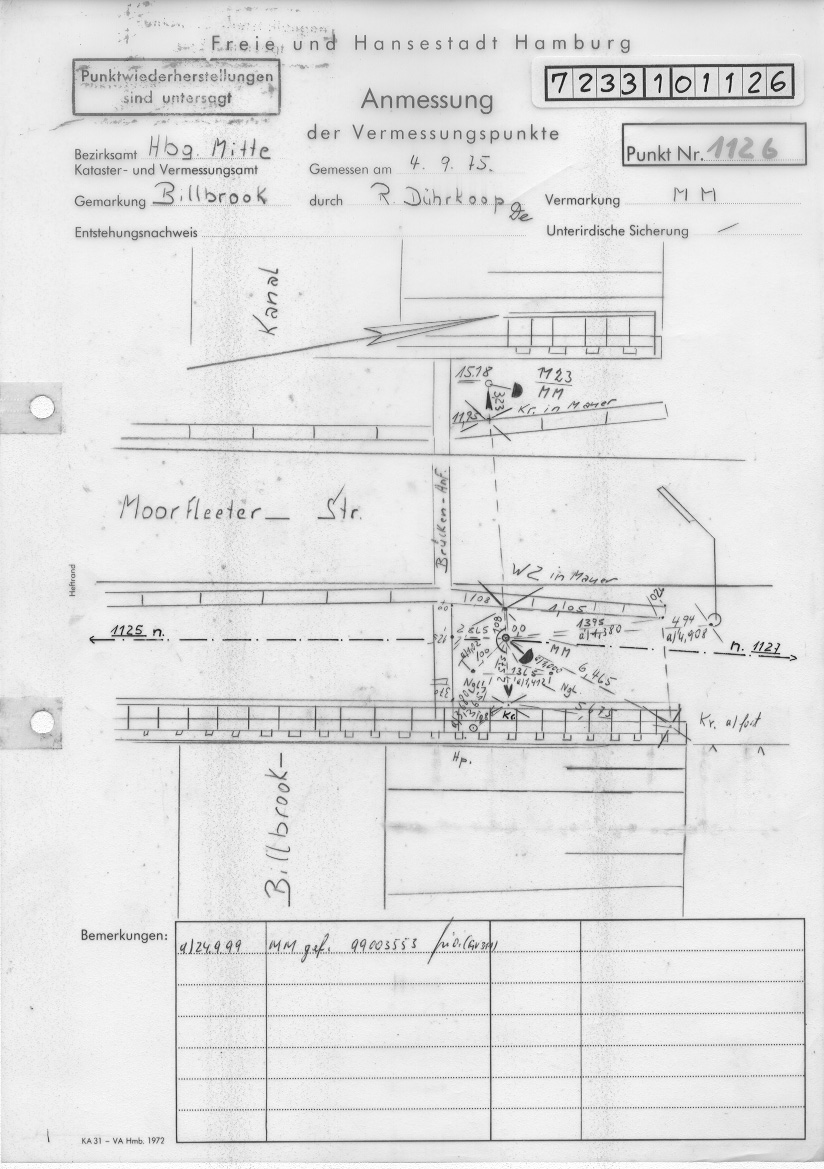 Freie und Hansestadt Hamburg
Punktwiederherstellungen
sind untersagt
7233101126
Anmessung
der Vermessungspunkte
Punkt Nr. 1126
Bezirksamt Hbg. Mitte
Kataster- und Vermessungsamt
Gemessen am 4. 9. 75.
Gemarkung Billbrook
durch R. Dührkoop
Vermarkung MM
Entstehungsnachweis
Unterirdische Sicherung —
Kanal
15.18
M23
MM
3,23
11,25
Kr. in Mauer
Brücken-Anf.
Moorfleeter Str.
Heftrand
WZ in Mauer
1,08
1,05
1,02
1125 n.
2,645
1,08
0,0
1395
a/1,380
4,94
a/4,908
n. 1127
MM
1,00
1365
a/1,412
6,465
Ngl.
Ngl.
5,675
Kr.
Kr. a/fort
Hp.
Billbrook-
Bemerkungen:
a/24.9.99 MM gef. 99003553
KA 31 – VA Hmb. 1972